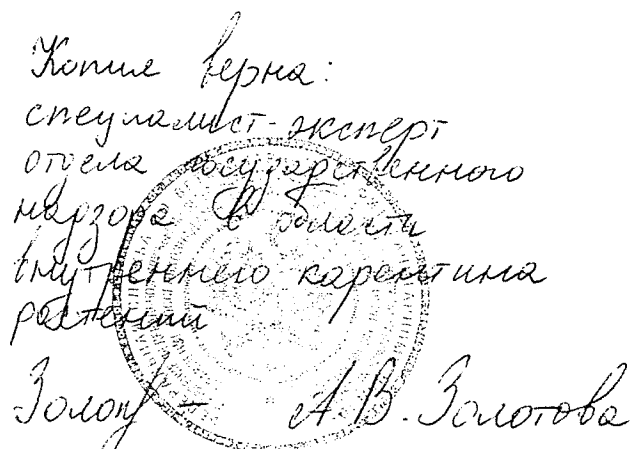 Копия верна:
специалист-эксперт
отдела государственного
надзора в области
внутреннего карантина
растений
Золот – А.В. Золотова